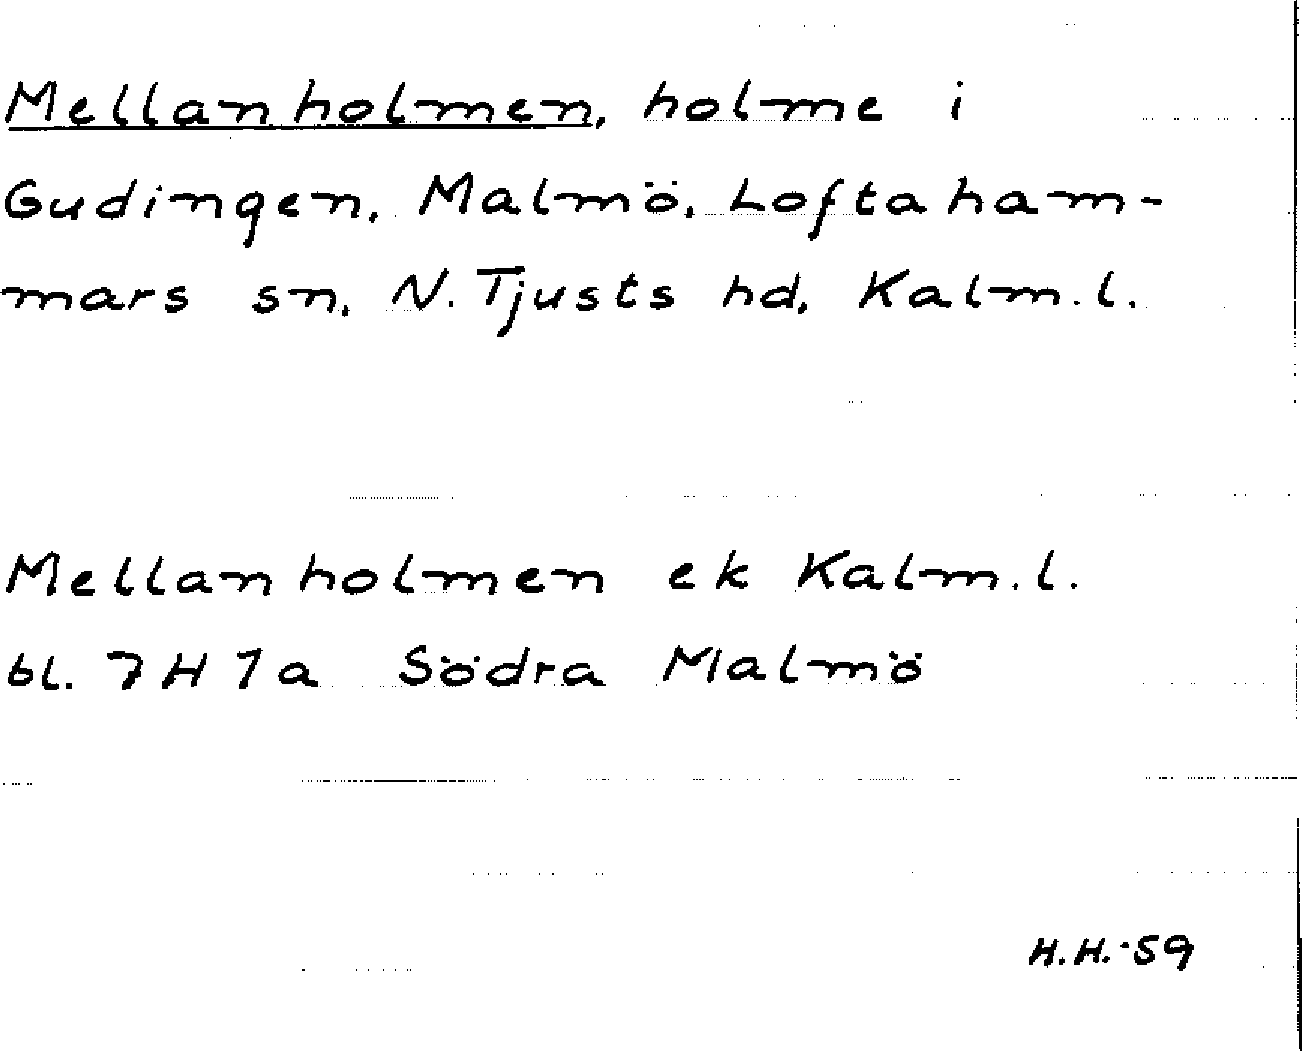 Mellanholmen, holme i
Gudingen, Malmö, Loftaham-
mars sn, N. Tjusts hd, Kalm. l.
Mellanholmen ek Kalm. l.
bl. 7H 7a Södra Malmö
H.H. -59